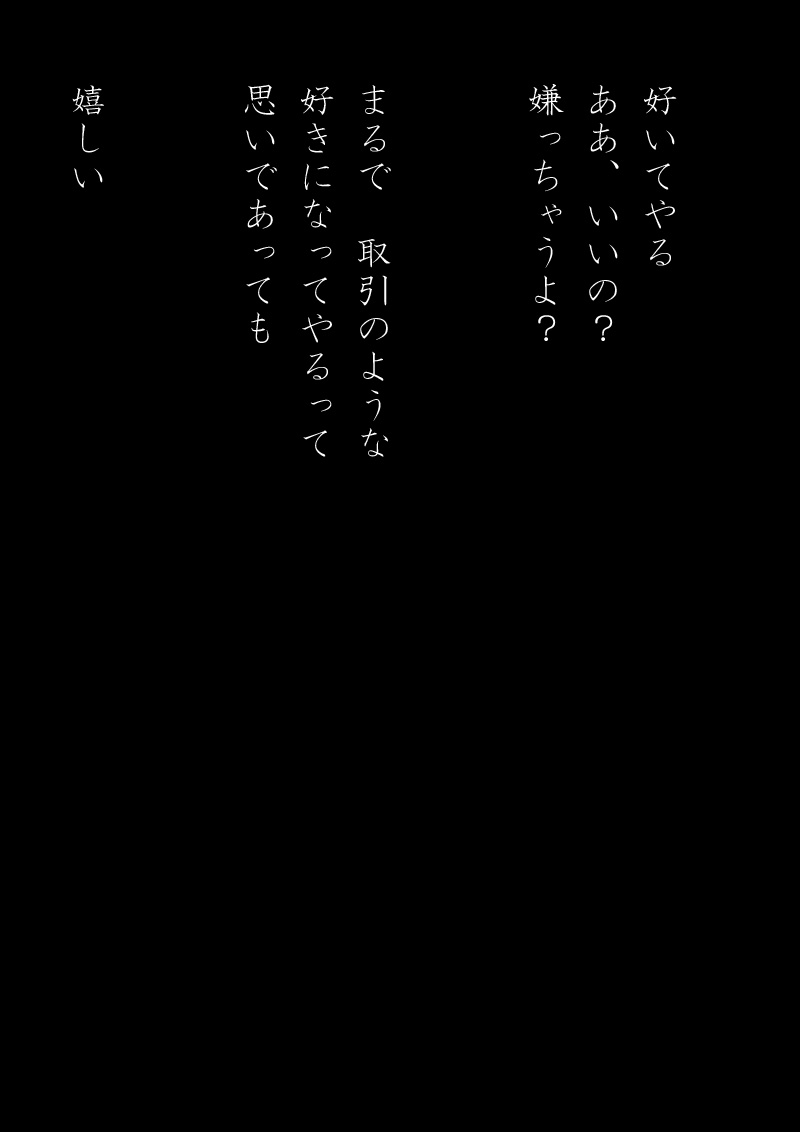 好いてやる
ああ、いいの？
嫌っちゃうよ？
まるで　取引のような
好きになってやるって
思いであっても
嬉しい